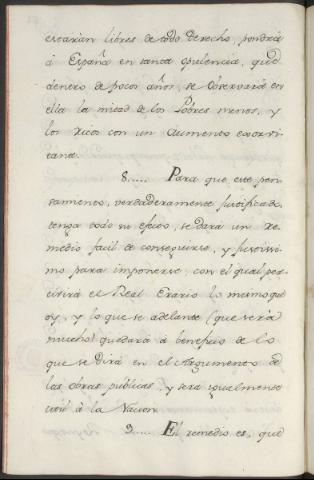 estarian libres de todo derecho, pondria
à España en tanta opulencia, que
dentro de pocos años, se observará en
ella la mitad de los Pobres menos, y
los ricos con un aumento exorvi-
tante.
8..... Para que este pen-
samiento, verdaderamente justificado,
tenga todo su efecto, se dará un re-
medio facil de conseguirse, y justissi-
mo para imponerse, con el qual per-
civirá el Real Erario lo mismo que
oy, y lo que se adelante (que será
mucho) quedará à beneficio de lo
que se dirá en el Argumento de
las obras publicas, y será igualmente
util à la Nacion.
9..... El remedio es, que